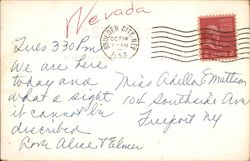 Nevada
BOULDER CITY, NEV.
OCT 14
1953
Tues 3:30 Pm
We are here
today and
what a sight
it cannot be
discribed
Rose Alice & Elmer
Miss Adella E Mattison
104 Southside Ave
Freeport NY